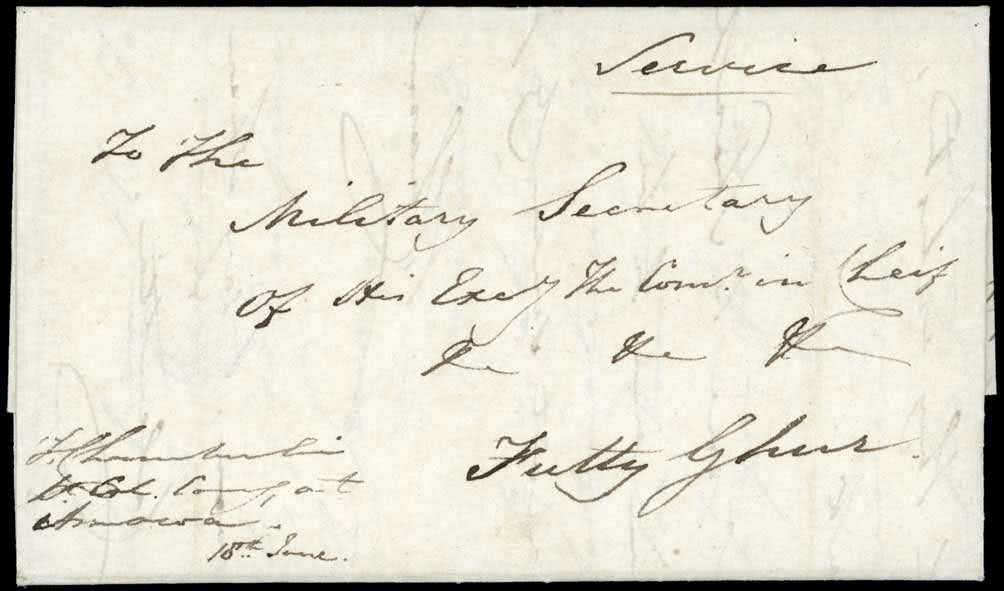 Service
To The
Military Secretary
Of His Excy The Comr. in Cheif
&c &c &c
Futty Ghur.
Lt Col. Comg. at
18th June.